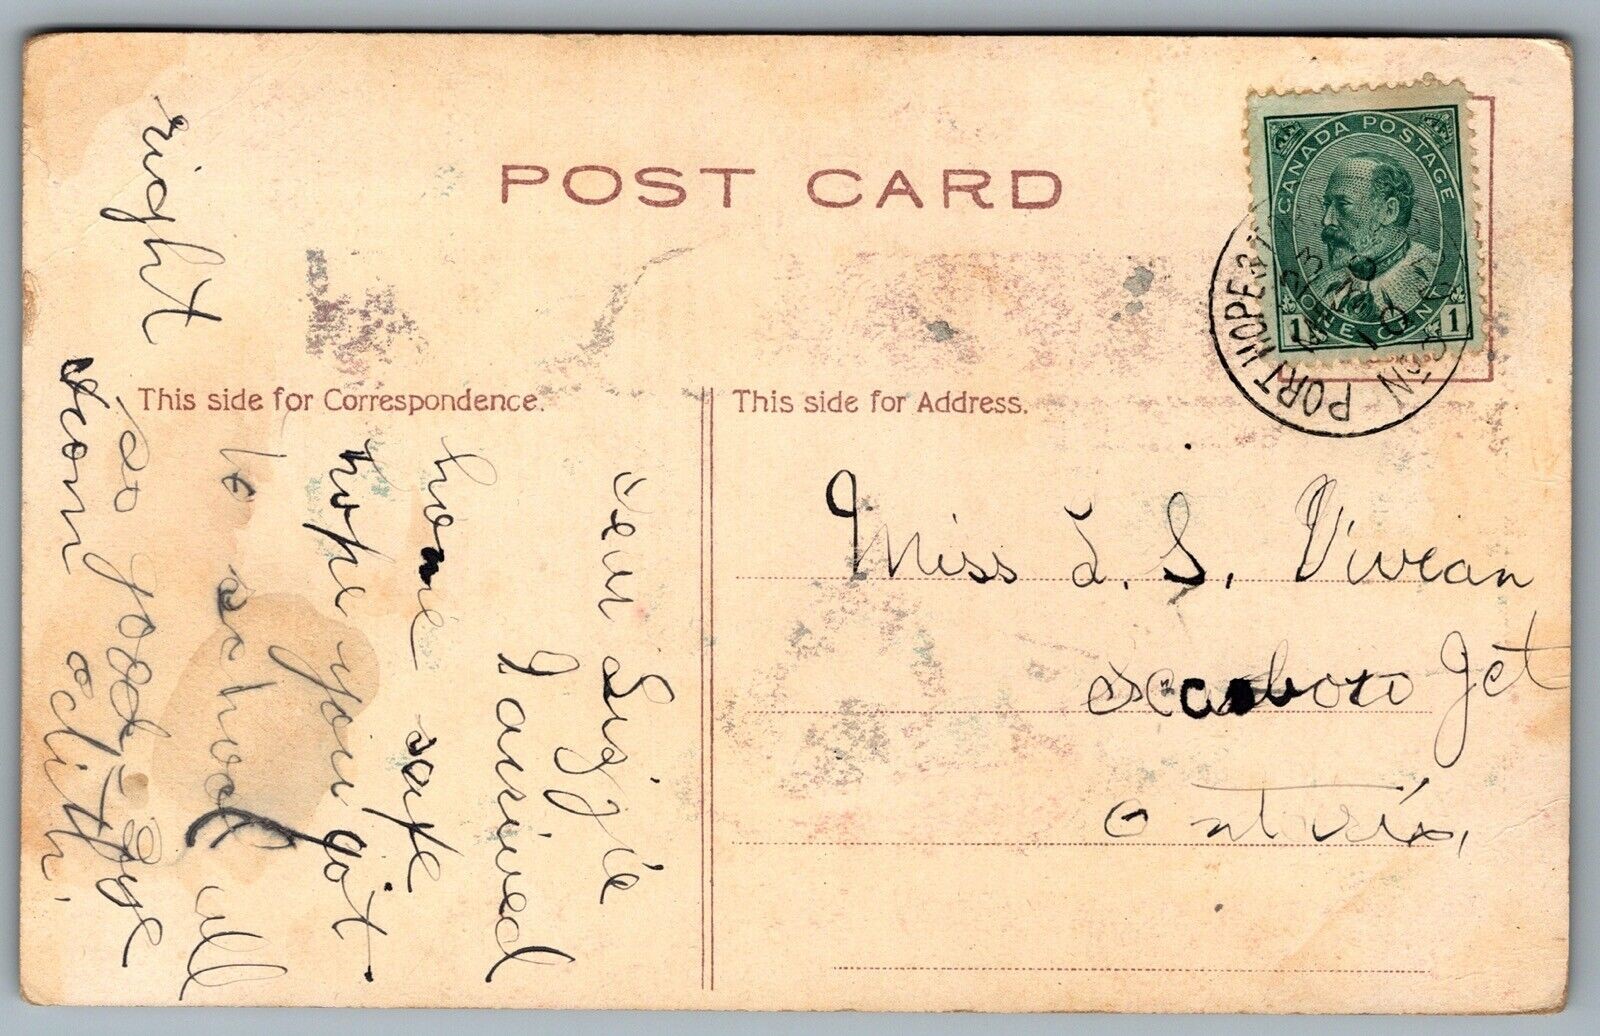 POST CARD
CANADA POSTAGE
1 ONE CENT 1
PORT HOPE
This side for Correspondence.
This side for Address.
Miss L. S. Vivian
Scarboro Jct
Ontario,
Dear Lizzie
I arrived
home safe
hope you got
to school all
right
so good-bye
from edith.